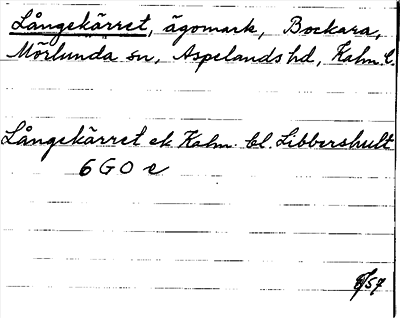 Långekärret, ägomark, Bockara,
Mörlunda sn, Aspelands hd, Kalm. l.
Långekärret ek Kalm. bl. Libbershult
6 G 0 e
/57